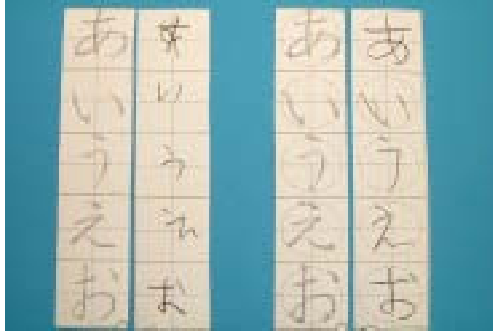 あ
い
う
え
お
あ
い
う
え
お
あ
い
う
え
お
あ
い
う
え
お